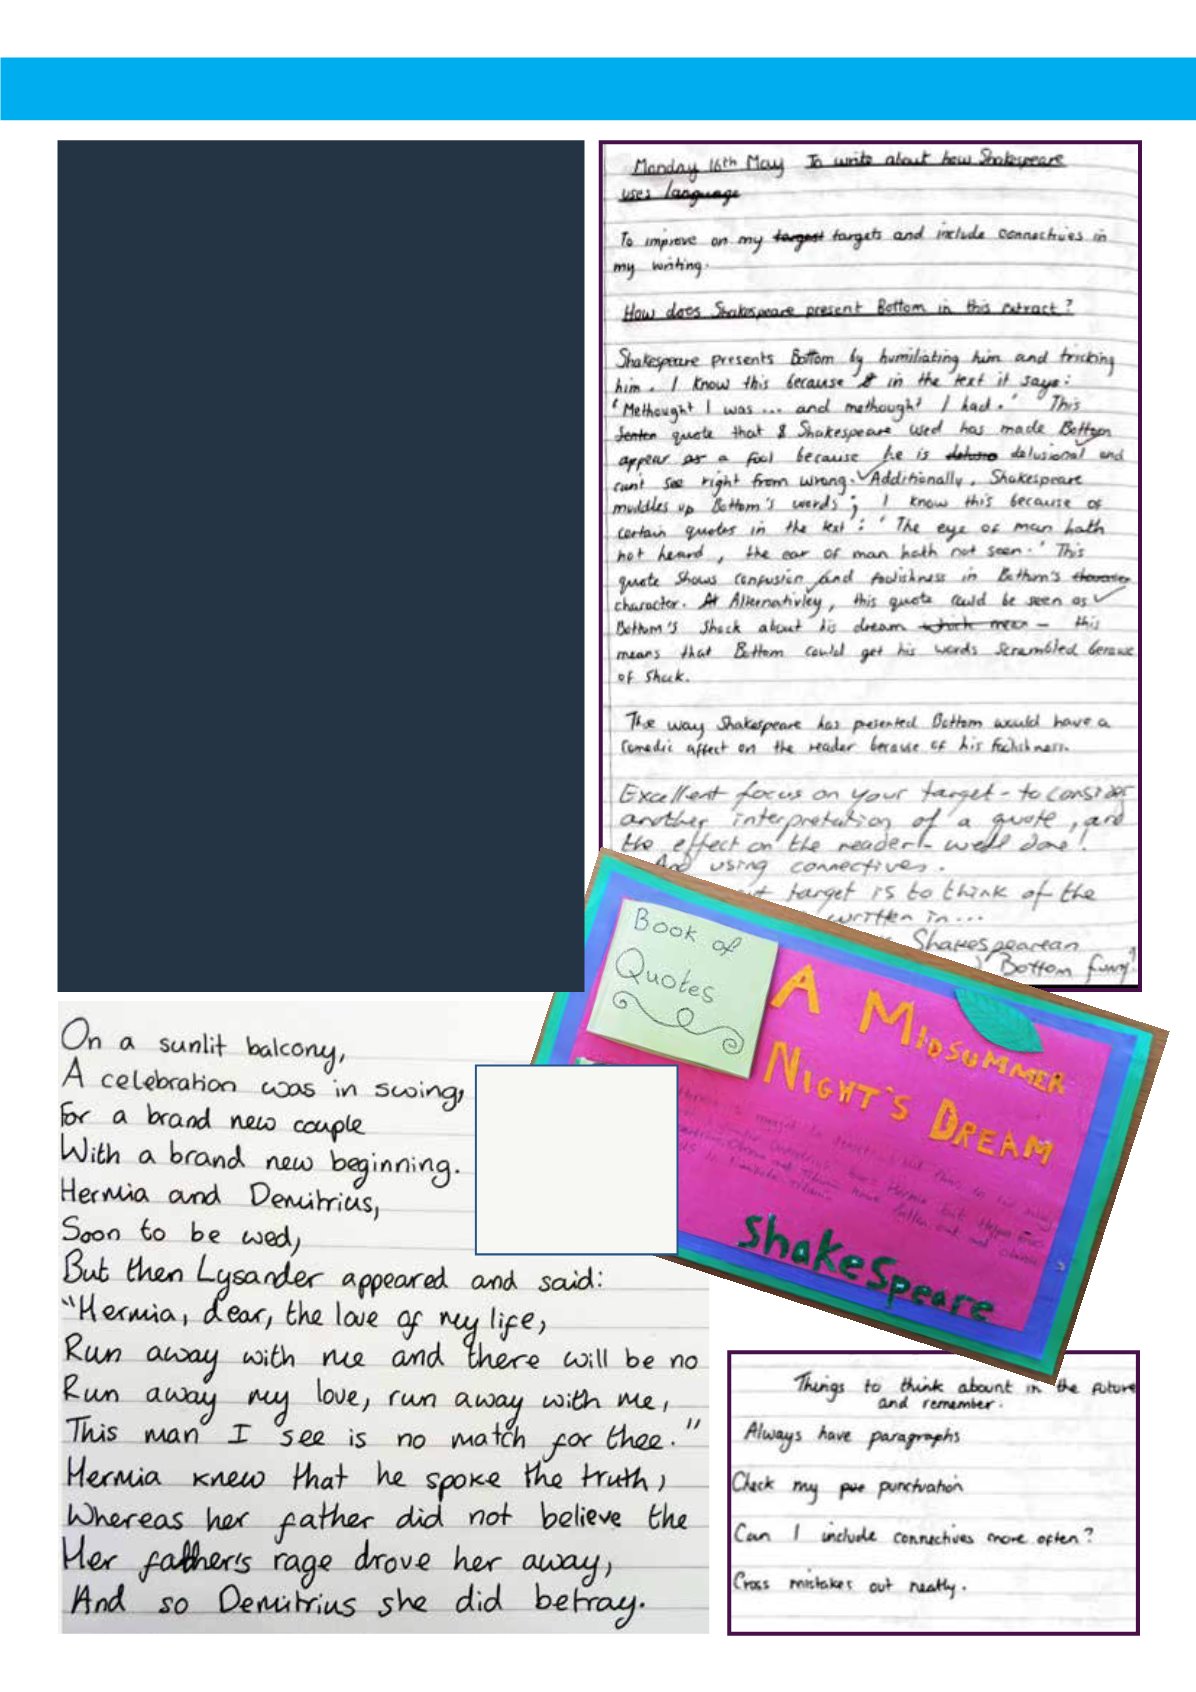 Monday 16th May To write about how Shakespeare
uses language
To improve on my targest targets and include connectives in
my writing.
How does Shakespeare present Bottom in this extract?
Shakespeare presents Bottom by humiliating him and tricking
him. I know this because in the text it says:
'Methought I was ... and methought I had.' This
quote that Shakespeare used has made Bottom
appear as a fool because he is delusional and
can't see right from wrong. Additionally, Shakespeare
muddles up Bottom's words; I know this because of
certain quotes in the text: 'The eye of man hath
not heard, the ear of man hath not seen.' This
quote shows confusion and foolishness in Bottom's character
character. At Alternativley, this quote could be seen as
Bottom's shock about his dream which mean - this
means that Bottom could get his words scrambled because
of shock.
The way Shakespeare has presented Bottom would have a
comedic affect on the reader because of his foolishness.
Excellent focus on your target - to consider
another interpretation of a quote, and
the effect on the reader - well done!
And using connectives.
target is to think of the
written in...
Shakespearean
Bottom funny?
Book of
Quotes
A MIDSUMMER
NIGHT'S DREAM
Shakespeare
On a sunlit balcony,
A celebration was in swing,
For a brand new couple
With a brand new beginning.
Hermia and Demitrius,
Soon to be wed,
But then Lysander appeared and said:
"Hermia, dear, the love of my life,
Run away with me and there will be no
Run away my love, run away with me,
This man I see is no match for thee."
Hermia knew that he spoke the truth,
Whereas her father did not believe the
Her father's rage drove her away,
And so Demitrius she did betray.
Things to think abount in the future
and remember.
Always have paragraphs
Check my pue punctuation
Can I include connectives more often?
Cross mistakes out neatly.